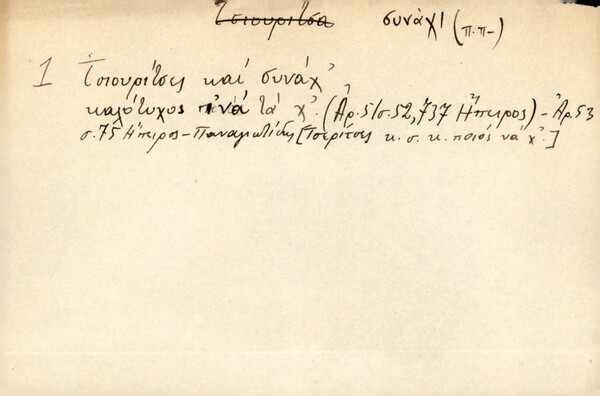 τσιουρίτσα συνάχι (π.π-)
1 Τσιουρίτσες καί συνάχ'
καλότυχος πὄνά τά χ'. (Ἀρ.51σ.52,737 Ἤπειρος) - Ἀρ.53
σ.75 Ἤπειρος - Παναγιωτίδης [Τσερίτσες κ. σ. κ. ποιός νά χ'.]